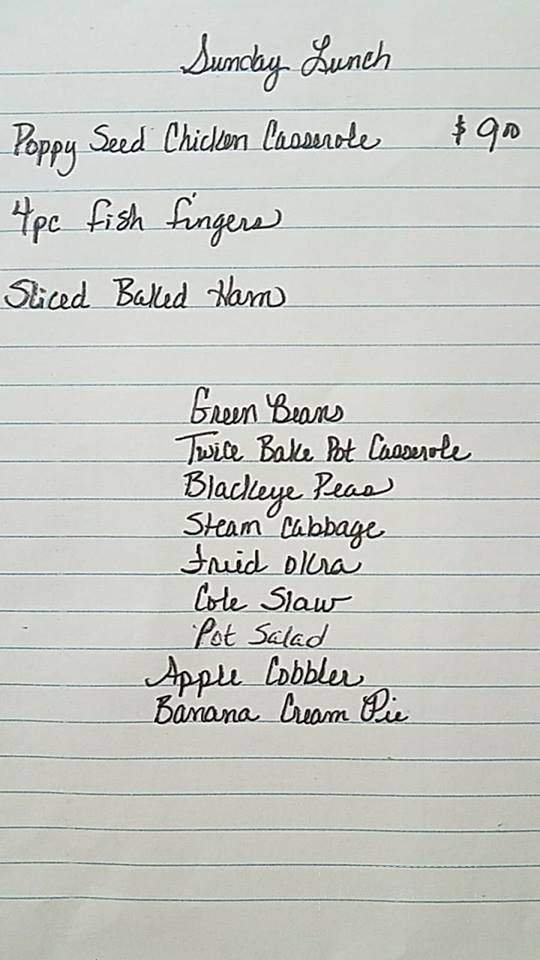 Sunday Lunch
Poppy Seed Chicken Casserole $9.00
4pc fish fingers
Sliced Baked Ham
Green Beans
Twice Bake Pot Casserole
Blackeye Peas
Steam Cabbage
Fried Okra
Cole Slaw
Pot Salad
Apple Cobbler
Banana Cream Pie